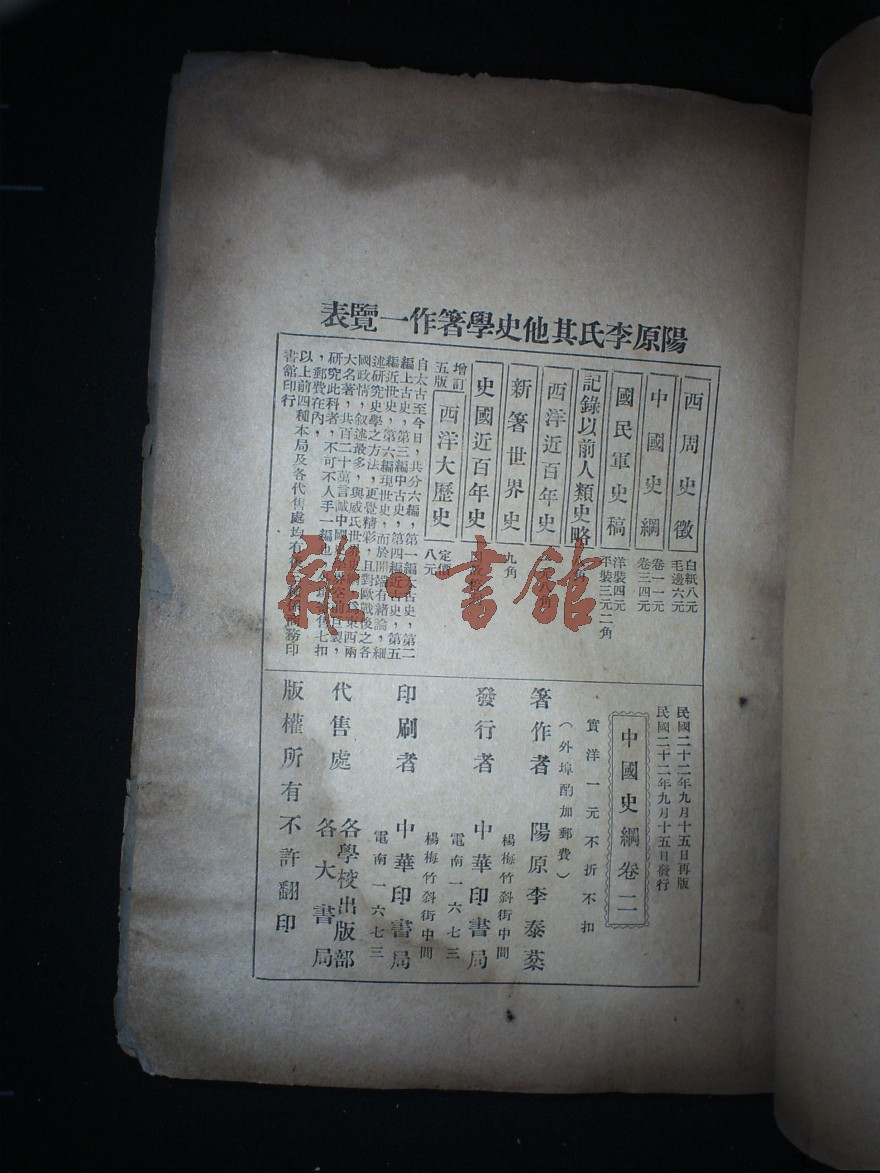 陽原李氏其他史學箸作一覽表
西周史徵
白紙八元
毛邊六元
中國史綱
卷一一元
卷三四元
國民軍史稿
洋裝四元
平裝三元二角
記錄以前人類史略
西洋近百年史
新箸世界史
九角
史國近百年史
增訂五版
西洋大歷史
定價八元
自太古至今日，共分六編，第一編太古史，第二
編上古史，第三編中古史，第四編近古史，第五
編近世史，第六編現世史，而於開端有緒論，細
述研究史學之方法，更覺精彩，且對歐戰後之各
國政情，叙述最多，與威氏世界史
東西兩
大名著，共百二十萬言誠中國
研究此科者，不可不人手一編也
售七扣
，郵費在內，
以上前四種本局及各代售處均有
務印
書館印行
民國二十二年九月十五日再版
民國二十二年九月十五日發行
中國史綱卷二
實洋一元不折不扣
（外埠酌加郵費）
箸作者 陽原李泰棻
發行者 中華印書局
楊梅竹斜街中間
電南一六七三
印刷者 中華印書局
楊梅竹斜街中間
電南一六七三
代售處 各學校出版部
各大書局
版權所有不許翻印
雜書館